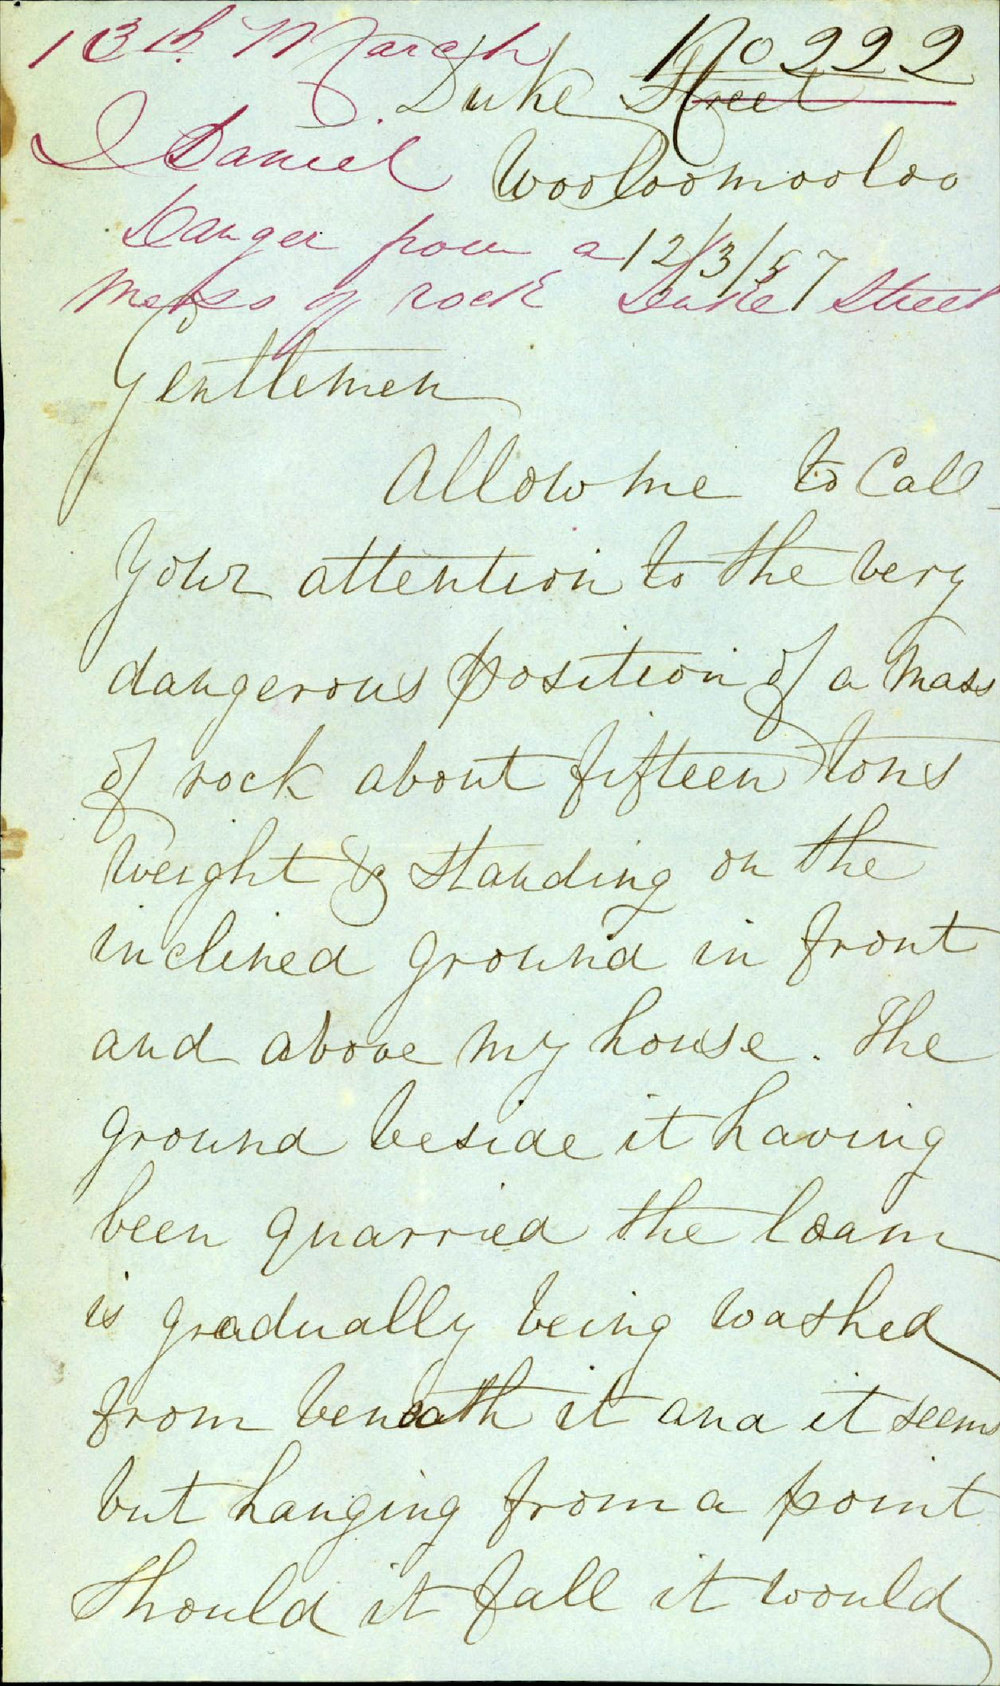 13th. March
No 222
Duke Street
J Daniel
Wooloomooloo
Danger from a
12/3/57
Mass of rock Duke Street
Gentlemen
Allow me to Call
Your attention to the very
dangerous position of a Mass
of rock about fifteen tons
weight & standing on the
inclined ground in front
and above my house. The
ground beside it having
been quarried the loam
is gradually being washed
from beneath it and it seems
but hanging from a point
Should it fall it would